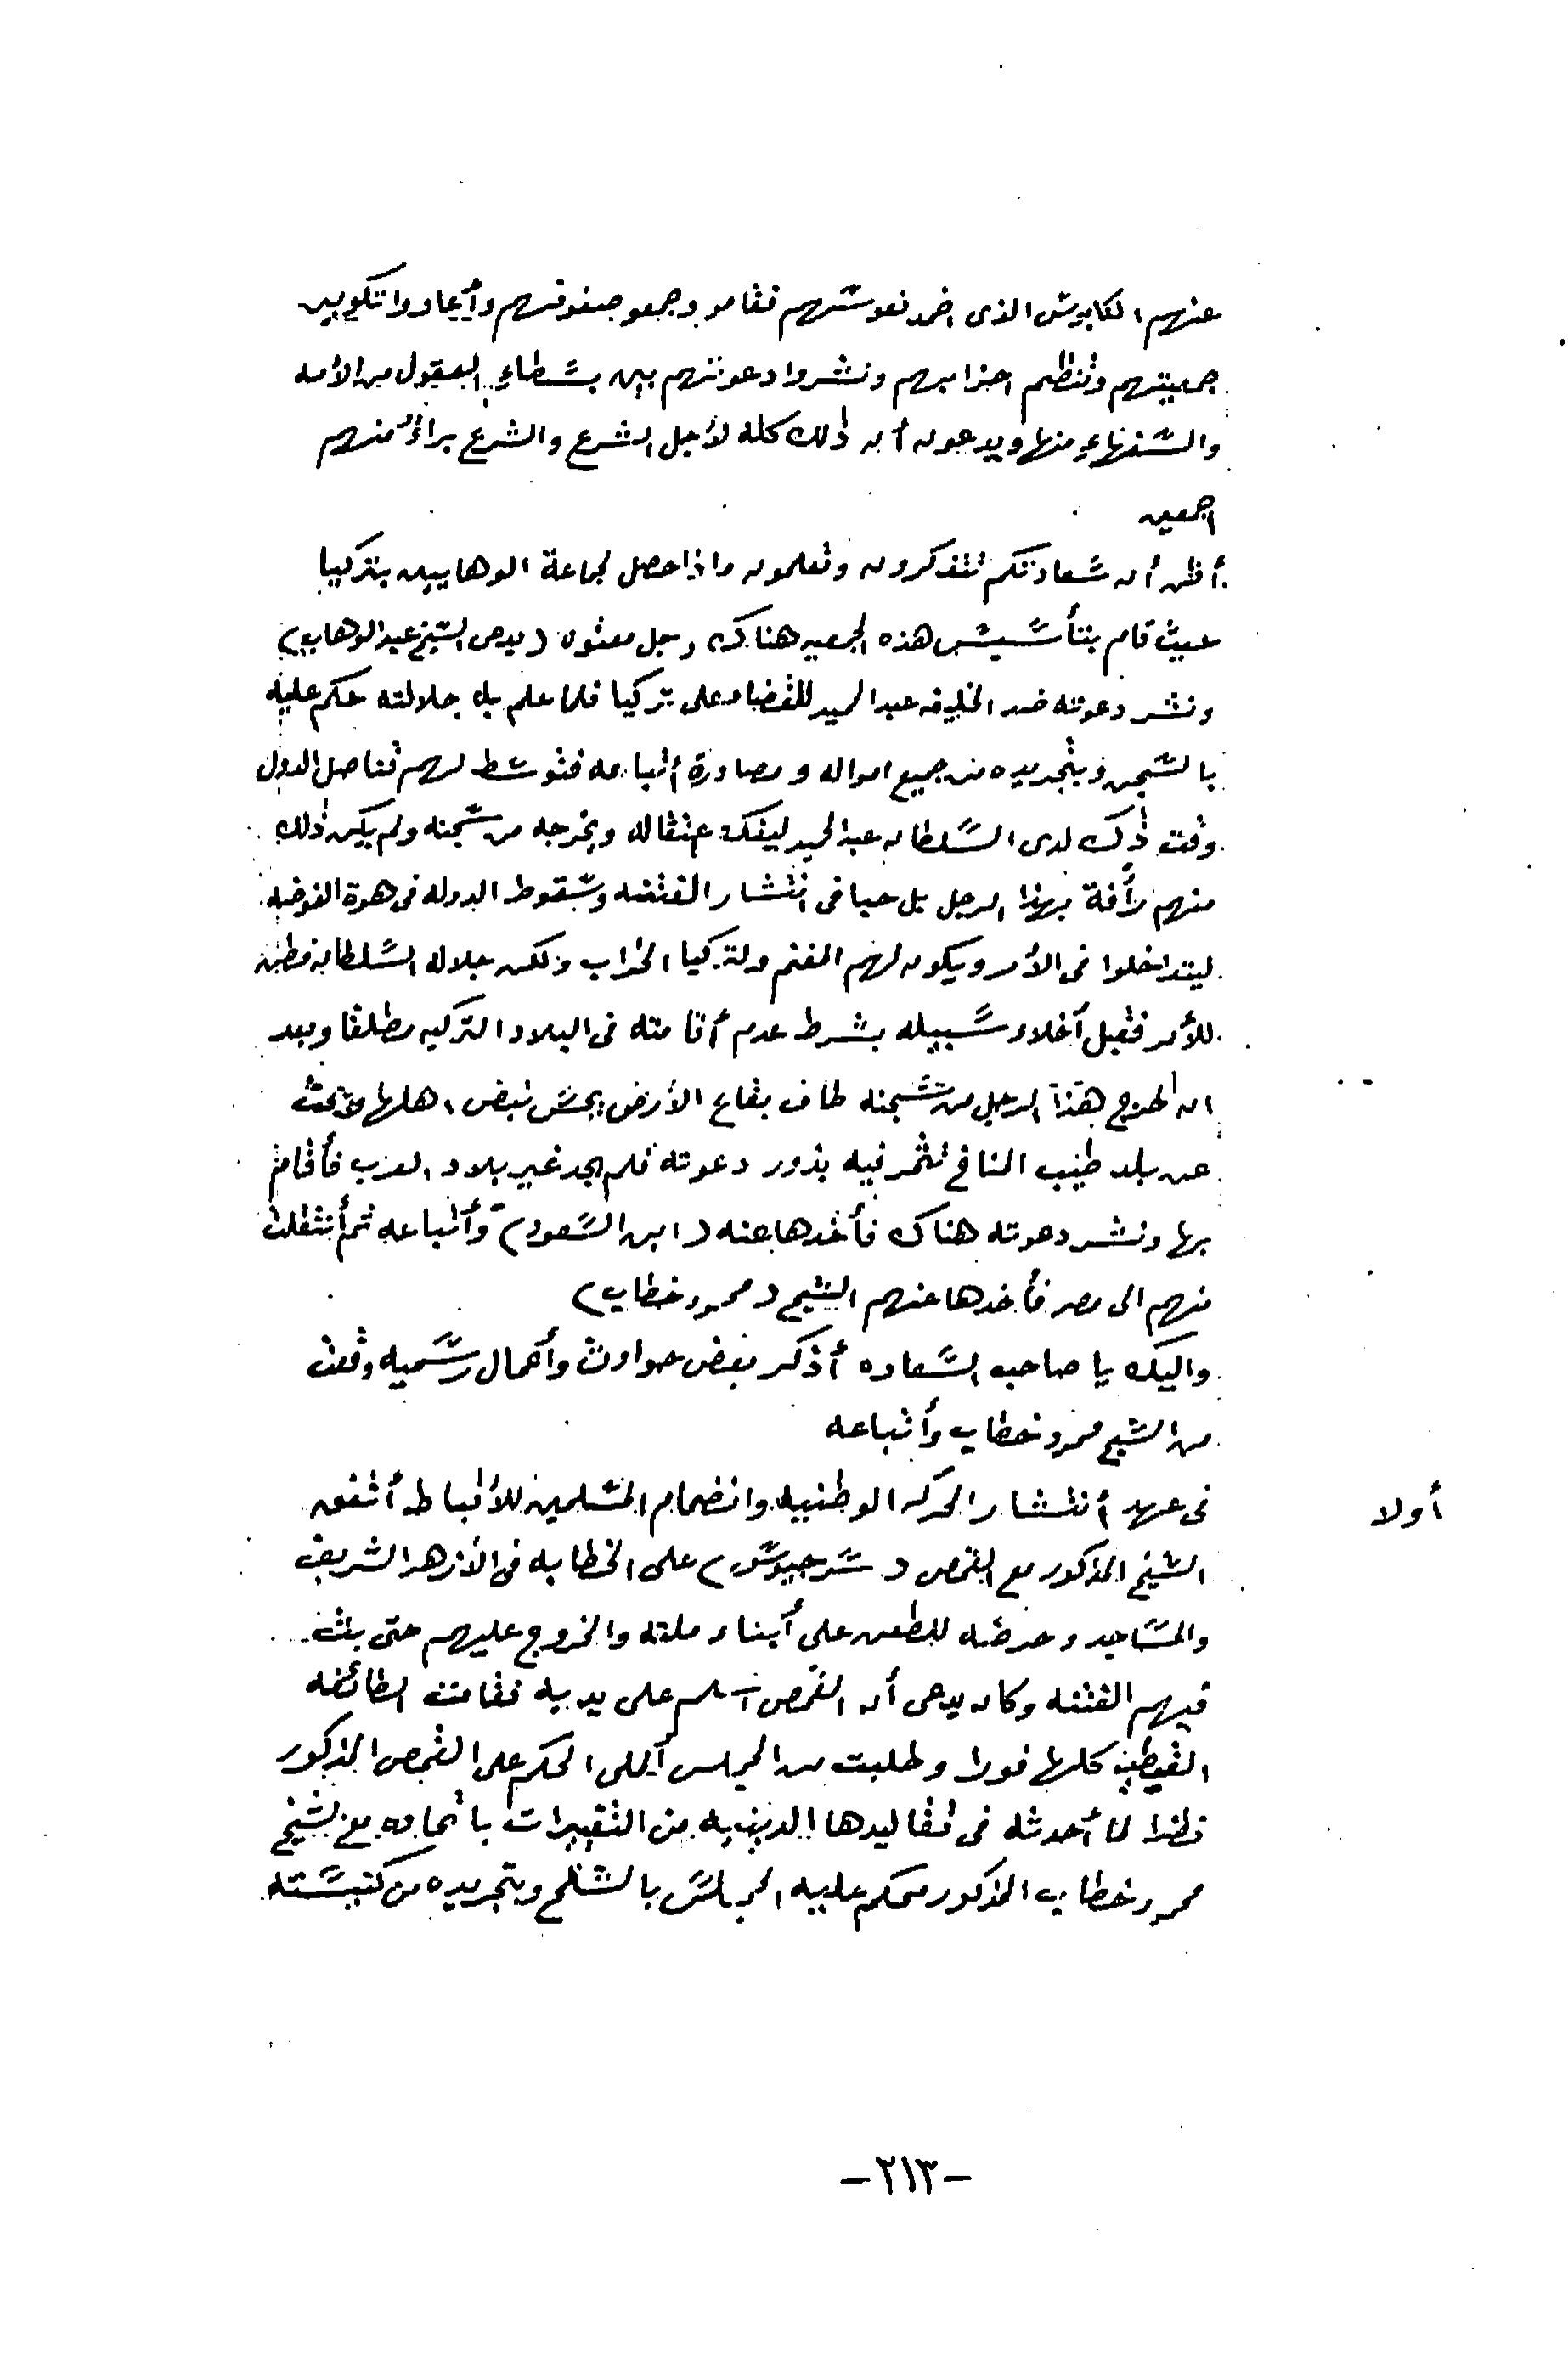 عنهم الكابوس الذى اخمد نفوسهم فقامو وجمعو صفوفهم وأعادوا تكوين
جمعيتهم وتنظيم احزابهم ونشروا دعوتهم بين بسطاء العقول من الأمه
والسفهاء منها ويدعون أن ذلك كله لأجل الشرع والشرع براءٌ منهم
اجمعين
أظن أن سعادتكم تتذكرون وتعلمون ماذا حصل لجماعة الوهابيين بتركيا
حيث قام بتأسيس هذه الجمعيه هناك رجل معتوه (يدعى الشيخ عبد الوهاب)
ونشر دعوته ضد الخليفه عبد الحميد للقضاء على تركيا فلما علم به جلالته حكم عليه
بالسجن وبتجريده من جميع امواله و مصادرة أتباعه فتوسط لهم قناصل الدول
وقت ذك لدى السلطان عبد الحميد ليفك اعتقاله ويخرجه من سجنه ولم يكن ذلك
منهم رأفة بهذا الرجل بل حبا فى انتشار الفتنه وسقوط الدوله فى هوة الفوضيه
ليتداخلوا فى الأمر ويكون لهم الغنم ولتركيا الخراب ولكن جلاله السلطان فطن
للأمر فقبل أخلاء سبيله بشرط عدم أقامته فى البلاد التركيه مطلقا وبعد
ان اخرج هذا الرجل من سجنه طاف بقاع الأرض يجس نبض اهلها لابحث
عن بلد طيب المناخ تثمر فيه بذور دعوته فلم يجد غير بلاد العرب فأقام
بها ونشر دعوته هناك فأخذها عنه (ابن السعود) وأتباعه ثم أنتقلت
منهم الى مصر فأخذها عنهم الشيخ (محمود خطاب)
واليك يا صاحب السعاده أذكر بعض حوادث وأعمال رسميه وقعت
من الشيخ محمود خطاب وأتباعه
أولا فى عهد أنتشار الحركه الوطنيه وانضمام المسلمين للأقباط أتفق
الشيخ المذكور مع القمص (سرجيوس) على الخطابه فى الأزهر الشريف
والمساجد وحرضه للطعن على أبناء ملته والخروج عليهم حتى بث
فيهم الفتنه وكان يدعى أن القمص أسلم على يديه فقامت الطائفه
القبطيه كلها فورا وطلبت من المجلس الملى الحكم على القمص المذكور
نظرا لما أحدثه فى تقاليدها الدينيه من التغييرات باتحاده مع الشيخ
محمود خطاب المذكور فحكم عليه المجلس بالشلح وبتجريده من كنيسته
-٢١٣-